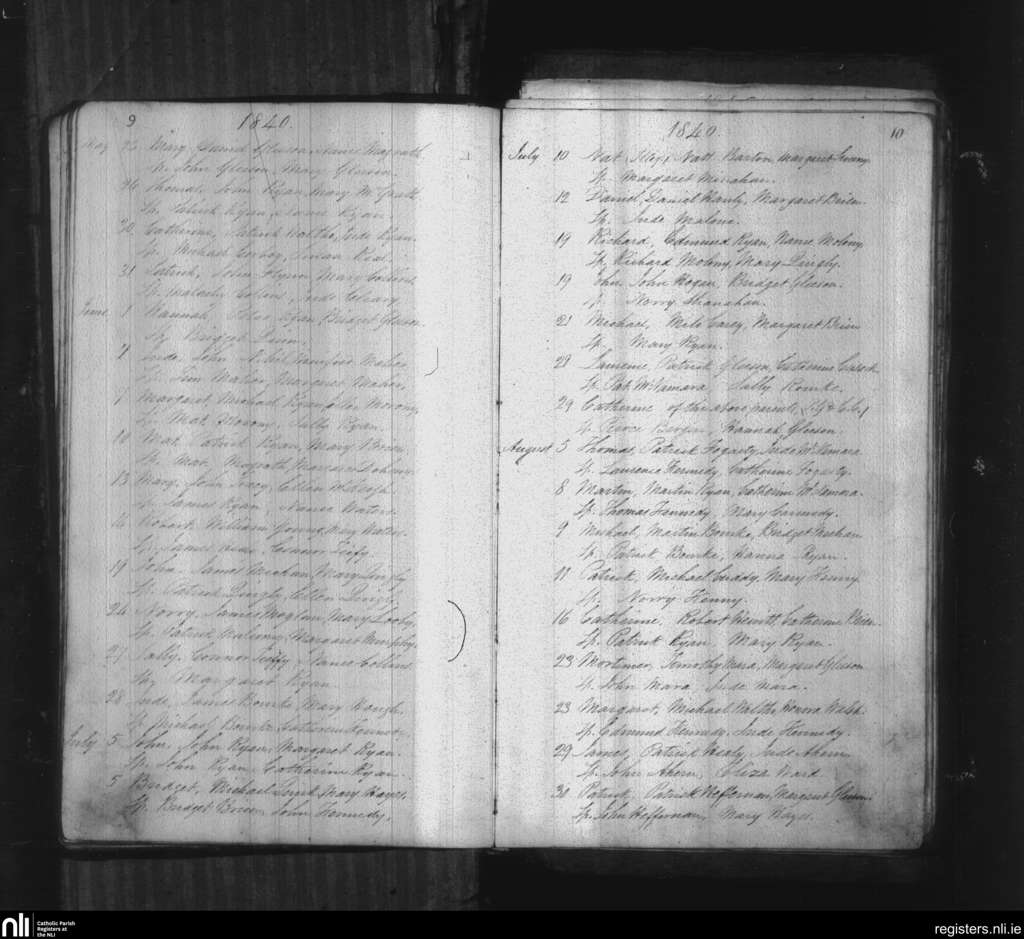 9
1840.
May 24 Mary, Daniel Gleeson, Nance Magrath
Sp. John Gleeson, Mary Gleeson.
26 Thomas, John Ryan, Mary McGrath
Sp. Patrick Ryan, Nance Ryan.
30 Catherine, Patrick Jude Ryan.
Sp. Michael
31 Patrick, John Flynn, Mary Collins,
Sp. Malachy Collins, Jude Cleary.
June 1 Hannah, Peter Ryan, Bridget Gleeson.
Sp. Bridget
7 Jude, John
Sp. Tim Maher, Margaret Maher,
7 Margaret, Michael Ryan,
Sp. Mat. Sally Ryan.
10 Mat, Patrick Ryan, Mary Brien,
Sp. Magrath,
13 Mary, John Tracy, Ellen
Sp. James Ryan, Nance Waters.
16 Robert, William Young, Mary Waters.
Sp. James Connor Leffy.
19 John, James Meehan, Mary Lingly
Sp. Patrick Lingly, Ellen Lingly.
24 Norry, James Mary Looby,
Sp. Patrick Margaret Murphy.
27 Sally, Connor Leffy, Nance Collins
Sp. Margaret Ryan.
28 Jude, James Bourke, Mary
Sp. Michael Bourke, Catherine
July 5 John, John Ryan, Margaret Ryan.
Sp. John Ryan, Catherine Ryan.
5 Bridget, Michael Mary Hayes,
Sp. Bridget Brien, John Kennedy,
1840.
10
July 10 Nat. Natt Barton, Margaret
Sp. Margaret Minahan.
12 Daniel, Daniel Hanly, Margaret Brien.
Sp. Jude Malone.
19 Richard, Edmund Ryan, Nance Molony
Sp. Richard Molony, Mary Lingly.
19 John, John Hogan, Bridget Gleeson.
Sp. Norry Shanahan.
21 Michael, Mile Carey, Margaret Brien
Sp. Mary Ryan.
29 Laurence, Patrick Gleeson, Catherine
Sp. Pat. McNamara Sally Rourke.
29 Catherine of the above parents,
Sp. Pierce Bergin, Hannah Gleeson.
August 5 Thomas, Patrick Fogarty, Jude McNamara.
Sp. Laurence Kennedy, Catherine Fogarty.
8 Martin, Martin Ryan, Catherine McNamara.
Sp. Thomas Kennedy, Mary Kennedy.
9 Michael, Martin Bourke, Bridget Meehan.
Sp. Patrick Bourke, Hanna Ryan.
11 Patrick, Michael Cuddy, Mary Kenny.
Sp. Norry Kenny.
16 Catherine, Robert Hewitt, Catherine Brien.
Sp. Patrick Ryan, Mary Ryan.
23 Mortimer, Timothy Mara, Margaret Gleeson
Sp. John Mara, Jude Mara.
23 Margaret, Michael Honora Walsh.
Sp. Edmund Kennedy, Jude Kennedy.
29 James, Patrick Healy, Jude Ahern
Sp. John Ahern, Eliza Ward
30 Patrick, Patrick Heffernan, Margaret Gleeson
Sp. John Heffernan, Mary Hayes.
nli
Catholic Parish
Registers at
the NLI
registers.nli.ie